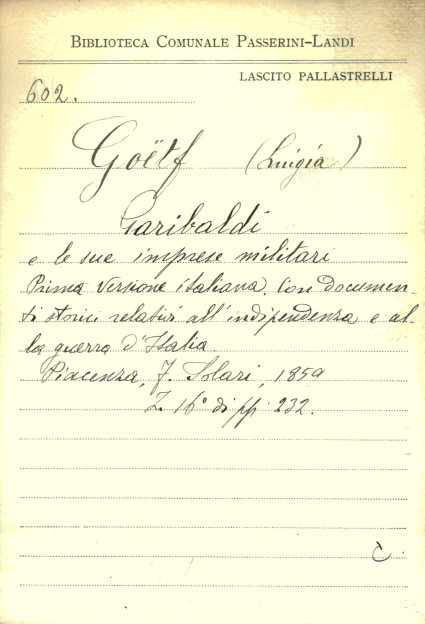 BIBLIOTECA COMUNALE PASSERINI-LANDI
LASCITO PALLASTRELLI
602.
Goëtf (Luigia)
Garibaldi
e le sue imprese militari
Prima versione italiana, con documen-
ti storici relativi all'indipendenza e al-
la guerra d'Italia
Piacenza, F. Solari, 1859
16° di pp 232.
C